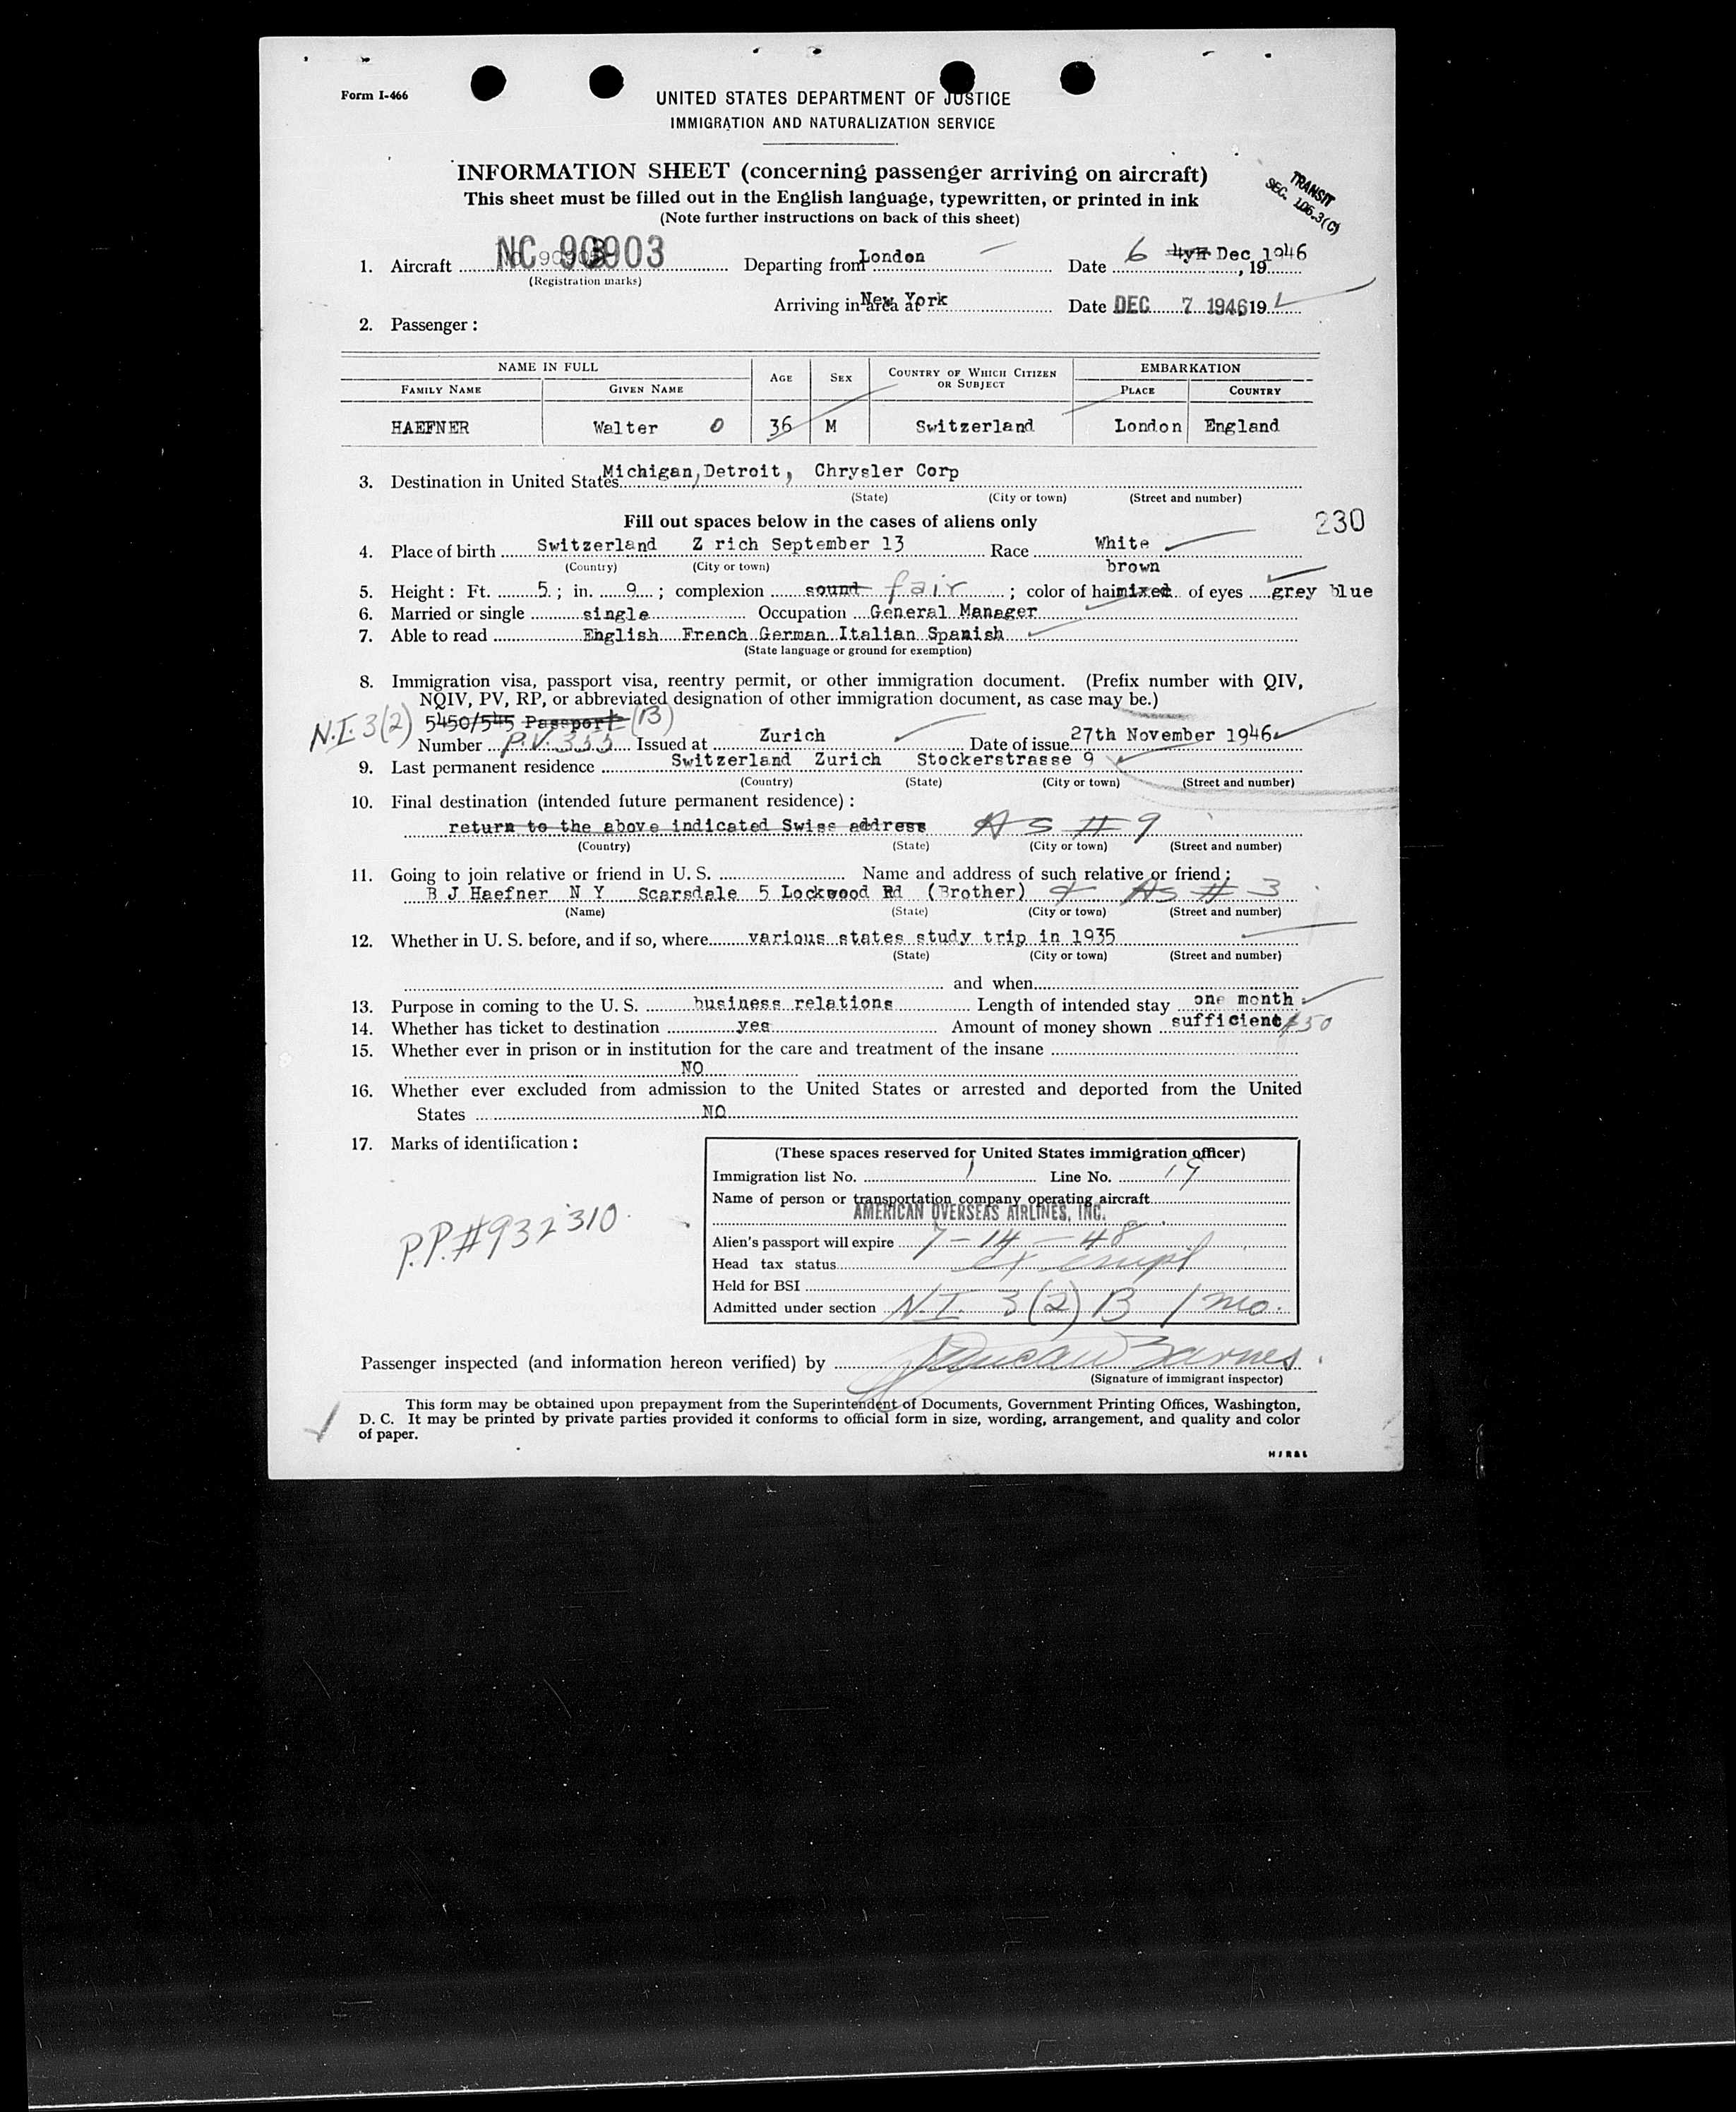 Form I-466
UNITED STATES DEPARTMENT OF JUSTICE
IMMIGRATION AND NATURALIZATION SERVICE
INFORMATION SHEET (concerning passenger arriving on aircraft)
This sheet must be filled out in the English language, typewritten, or printed in ink
(Note further instructions on back of this sheet)
TRANSIT
SEC. 106.3(C)
1. Aircraft NC 90903 Departing from London Date 6 Dec, 1946
(Registration marks)
Arriving in area at New York Date DEC 7 1946 19
2. Passenger:
NAME IN FULL AGE SEX COUNTRY OF WHICH CITIZEN OR SUBJECT EMBARKATION
FAMILY NAME GIVEN NAME PLACE COUNTRY
HAEFNER Walter O 36 M Switzerland London England
3. Destination in United States Michigan, Detroit, Chrysler Corp
(State) (City or town) (Street and number)
Fill out spaces below in the cases of aliens only
230
4. Place of birth Switzerland Z rich September 13 Race White
(Country) (City or town)
brown
5. Height: Ft. 5; in. 9; complexion sound fair; color of hair mixed of eyes grey blue
6. Married or single single Occupation General Manager
7. Able to read English French German Italian Spanish
(State language or ground for exemption)
8. Immigration visa, passport visa, reentry permit, or other immigration document. (Prefix number with QIV,
NQIV, PV, RP, or abbreviated designation of other immigration document, as case may be.)
N.I. 3(2) 5450/545 Passport (B)
Number P.V. 355 Issued at Zurich Date of issue 27th November 1946
9. Last permanent residence Switzerland Zurich Stockerstrasse 9
(Country) (State) (City or town) (Street and number)
10. Final destination (intended future permanent residence):
return to the above indicated Swiss address AS # 9
(Country) (State) (City or town) (Street and number)
11. Going to join relative or friend in U. S. Name and address of such relative or friend:
B J Haefner N Y Scarsdale 5 Lockwood Rd (Brother) & AS # 3
(Name) (State) (City or town) (Street and number)
12. Whether in U. S. before, and if so, where various states study trip in 1935
(State) (City or town) (Street and number)
and when
13. Purpose in coming to the U. S. business relations Length of intended stay one month
14. Whether has ticket to destination yes Amount of money shown sufficient $50
15. Whether ever in prison or in institution for the care and treatment of the insane
NO
16. Whether ever excluded from admission to the United States or arrested and deported from the United
States NO
17. Marks of identification:
P.P.#932310
(These spaces reserved for United States immigration officer)
Immigration list No. 1 Line No. 19
Name of person or transportation company operating aircraft
AMERICAN OVERSEAS AIRLINES, INC.
Alien's passport will expire 7-14-48
Head tax status exempt
Held for BSI
Admitted under section N.I. 3(2) B 1 mo.
Passenger inspected (and information hereon verified) by Duncan Barnes
(Signature of immigrant inspector)
This form may be obtained upon prepayment from the Superintendent of Documents, Government Printing Offices, Washington,
D. C. It may be printed by private parties provided it conforms to official form in size, wording, arrangement, and quality and color
of paper.